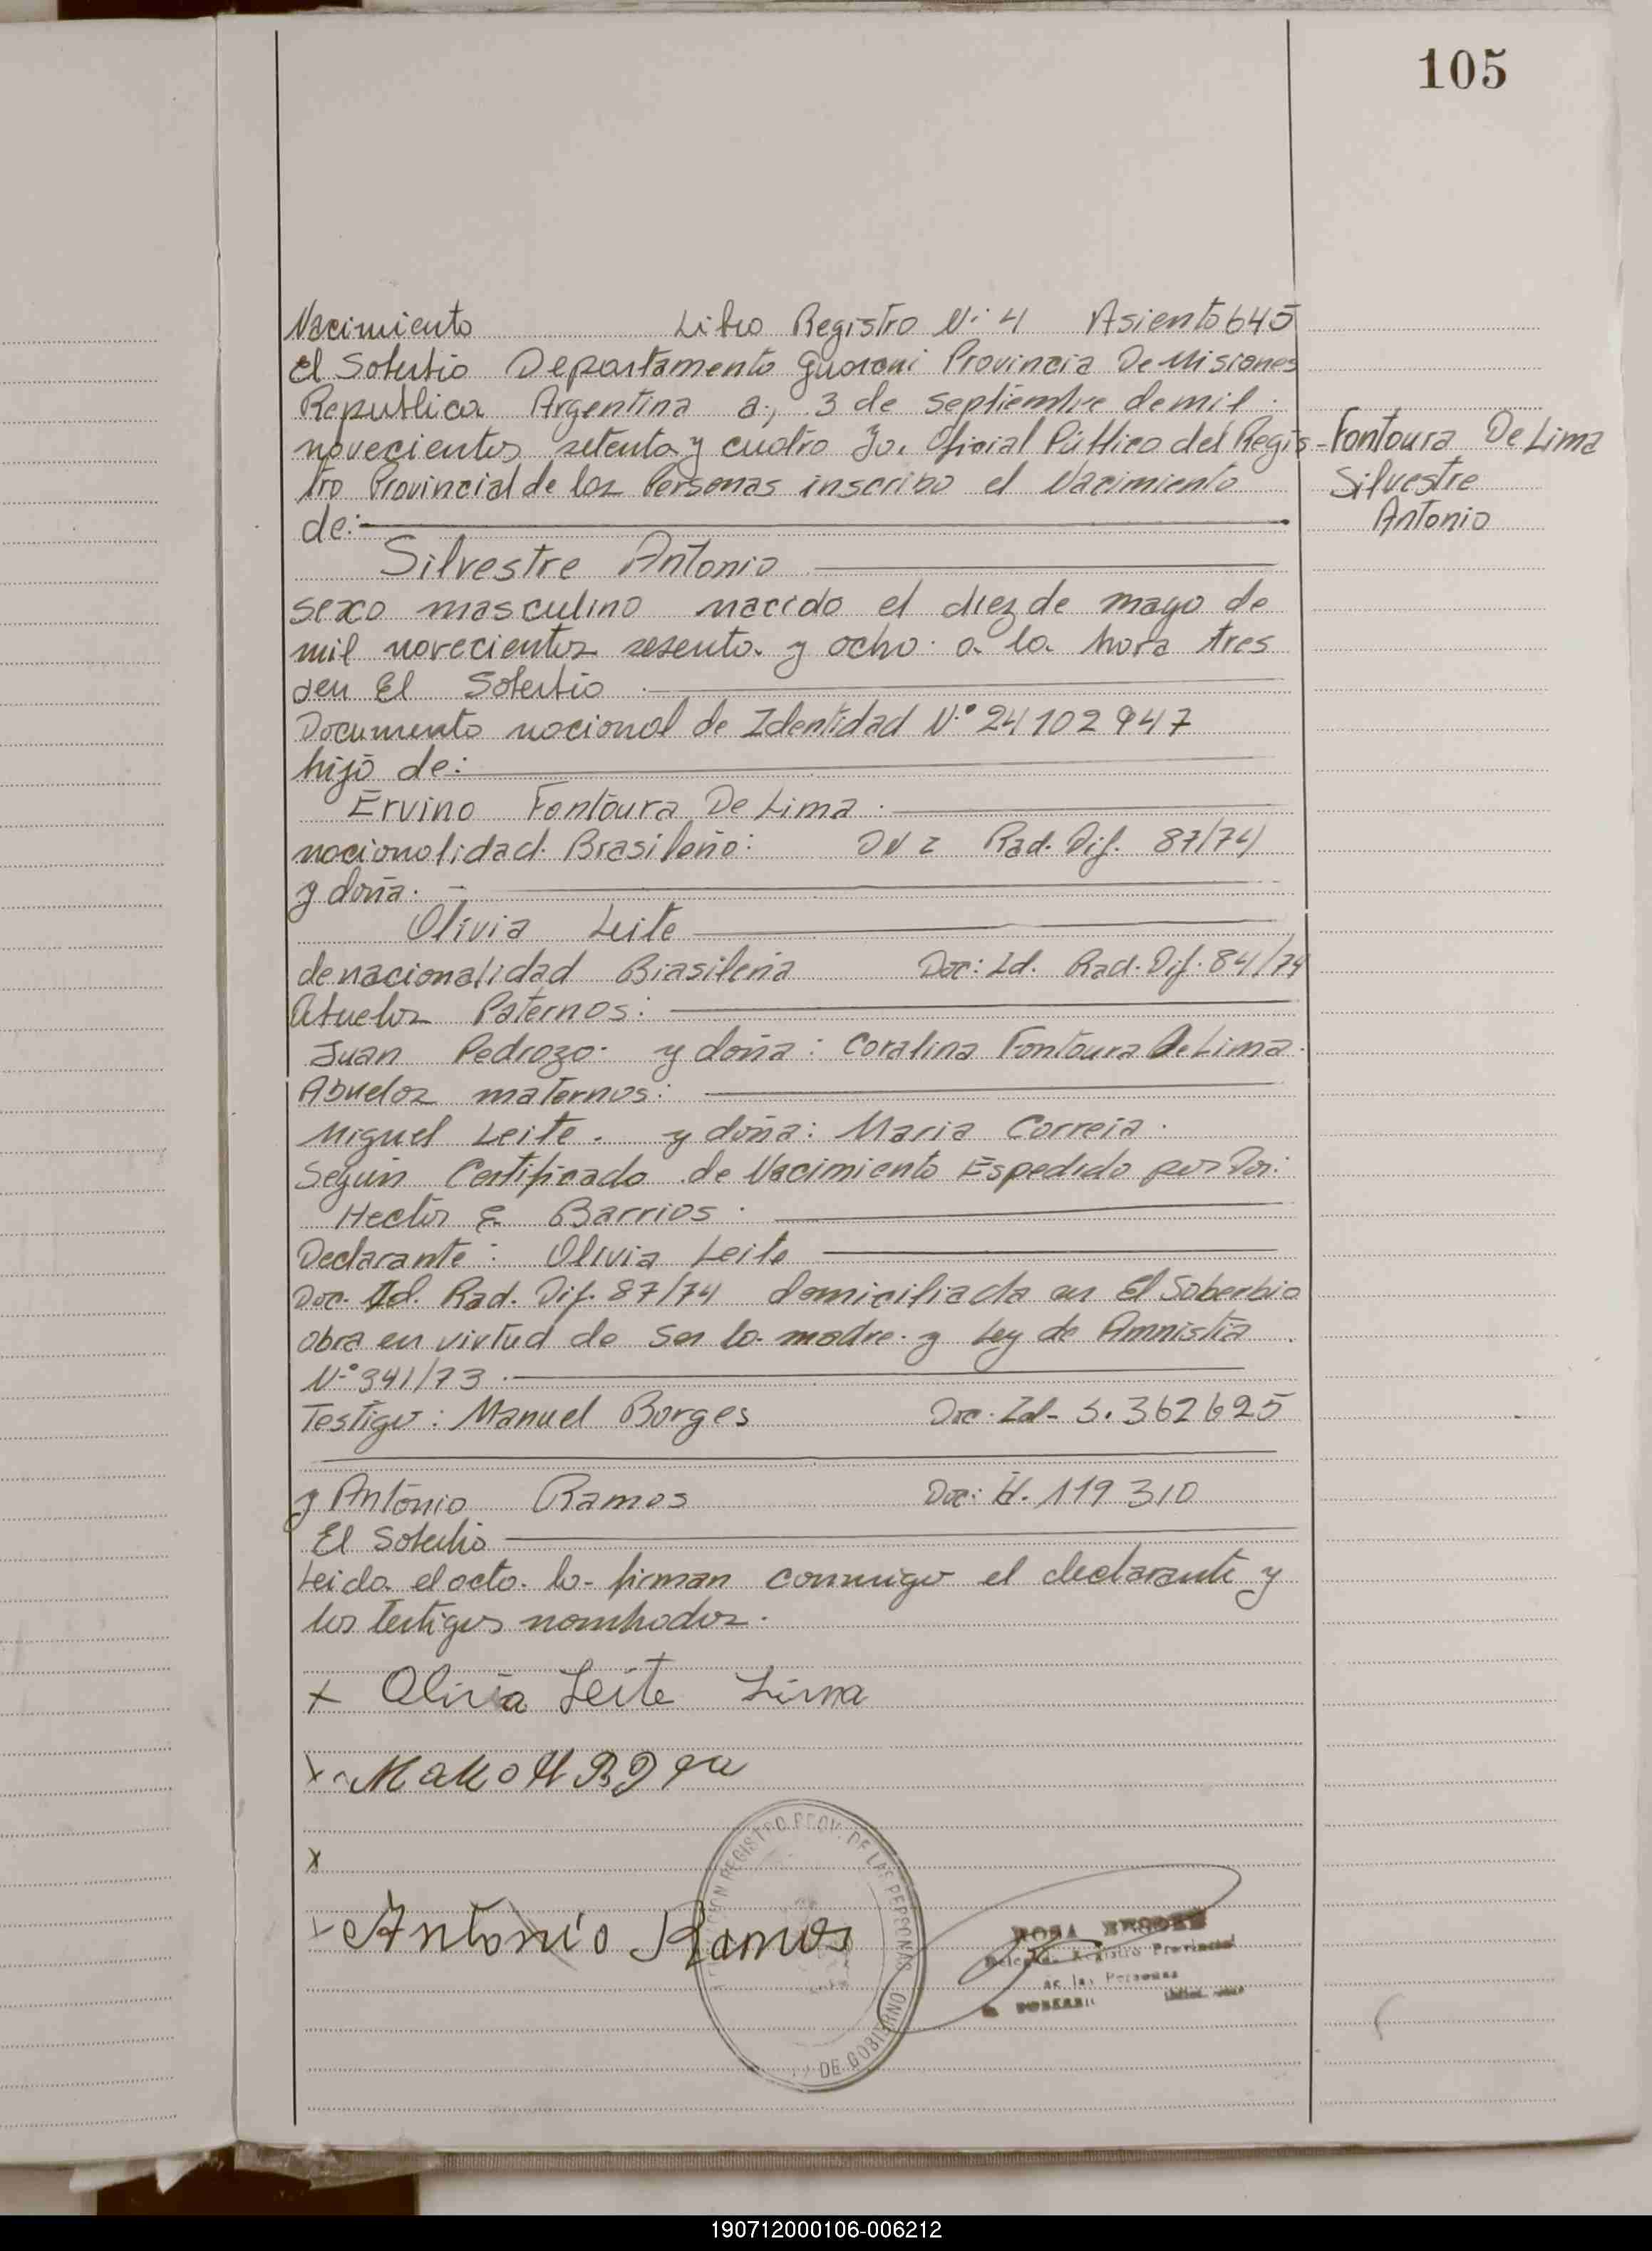 105
Nacimiento Libro Registro Nº 4 Asiento 645
El Soberbio Departamento Guarani Provincia De Misiones
Republica Argentina a, 3 de Septiembre de mil
novecientos setenta y cuatro Yo. Oficial Público del Regis-
tro Provincial de las Personas inscribo el Nacimiento
de:
Fontoura De Lima
Silvestre
Antonio
Silvestre Antonio
sexo masculino nacido el diez de mayo de
mil novecientos sesenta y ocho a la hora tres
en El Soberbio
Documento nacional de Identidad N.º 24102947
hijo de:
Ervino Fontoura De Lima
nacionalidad Brasileño: Rad. Dif. 87/74
y doña.
Olivia Leite
de nacionalidad Brasileña Doc: Id. Rad. Dif. 84/74
Abuelos Paternos:
Juan Pedrozo y doña: Coralina Fontoura De Lima.
Abuelos maternos:
Miguel Leite. y doña: Maria Correia.
Según Certificado de Nacimiento Espedido por Dr:
Hector E. Barrios.
Declarante: Olivia Leite
Doc. Id. Rad. Dif. 87/74 domiciliada en El Soberbio
obra en virtud de ser la madre y Ley de Amnistia
N.º 341/73.
Testigo: Manuel Borges Doc. Id- 3.362625
y Antonio Ramos Doc: Id. 119310
El Soberbio
Leida el acta lo firman conmigo el declarante y
los testigos nombrados.
x Olivia Leite Lima
x
x
Antonio Ramos
REGISTRO PROV. DE LAS PERSONAS
DE GOBIERNO
ROSA
Registro Provincial
de las Personas
190712000106-006212